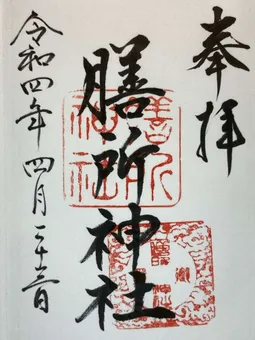 奉拝
膳所神社
令和四年四月二十三日
膳所
神社